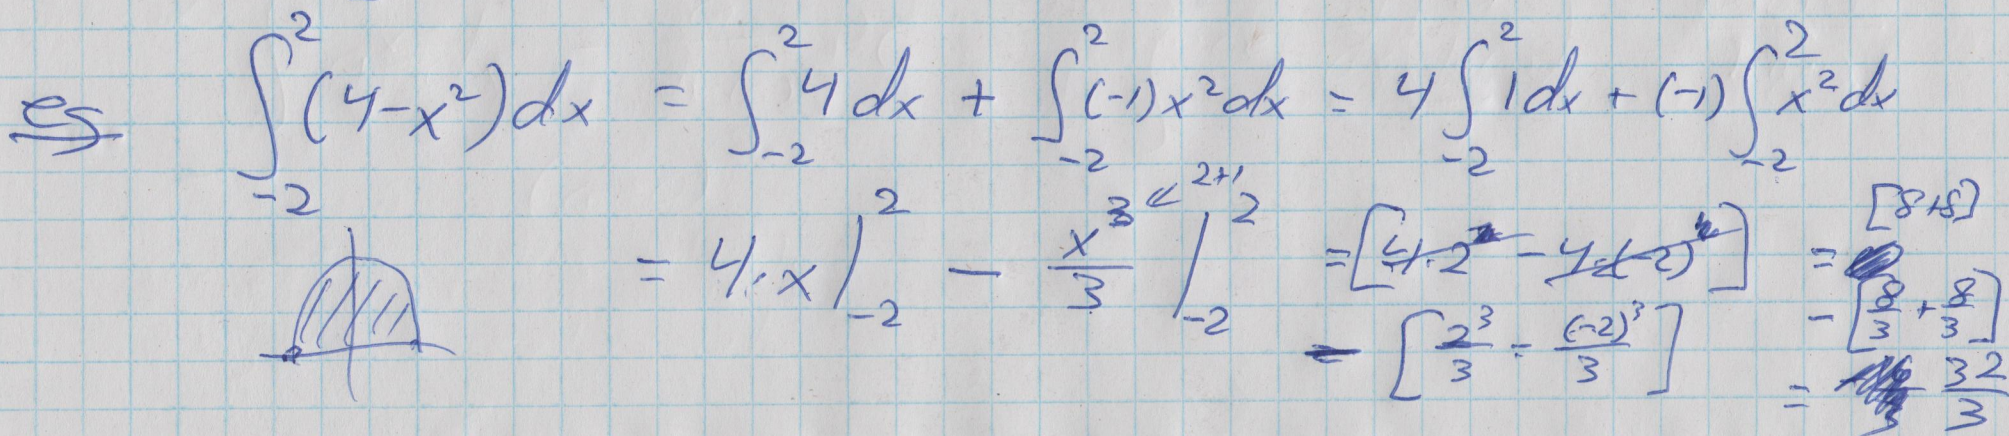 es ∫_{-2}^{2} (4-x²) dx = ∫_{-2}^{2} 4 dx + ∫_{-2}^{2} (-1) x² dx = 4 ∫_{-2}^{2} 1 dx + (-1) ∫_{-2}^{2} x² dx
= 4·x |_{-2}^{2} - x³/3 ← 2+1 |_{-2}^{2} = [4·2 - 4·(-2)] = [8+8]
- [2³/3 - (-2)³/3] - [8/3 + 8/3]
= 32/3